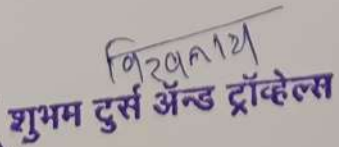 विश्वनाथ
शुभम टुर्स ॲन्ड ट्रॉव्हेल्स